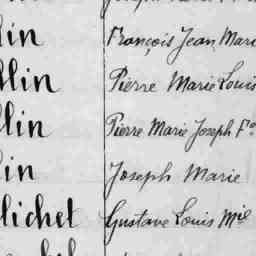 lin François Jean Mari
llin Pierre Marie Louis
llin Pierre Marie Joseph Fº
lin Joseph Marie
lichet Gustave Louis Mie